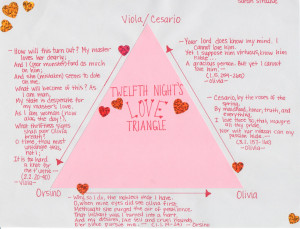 Viola/Cesario
How will this turn out? My master
loves her dearly;
And I (poor monster) fond as much
on him;
And she (mistaken) seems to dote
on me.
What will become of this? As
I am man,
My state is desperate for
my master's love.
As I am woman (now
alas the day!),
What thriftless sighs
shall poor Olivia
breath?
O time, thou must
untangle this,
not I;
It is too hard
a knot for
me t'untie.
-Viola-
Your lord does know my mind. I
cannot love him.
Yet I suppose him virtuous, know him
noble
A gracious person. But yet I cannot
love him.
-Olivia-
Cesario, by the roses of the
spring,
By maidhood, honor, truth, and
everything,
I love thee so, that, maugre
all thy pride,
Nor wit nor reason can my
passion hide.
-Olivia-
TWELFTH NIGHT'S
LOVE
TRIANGLE
Orsino
Olivia
Why, so I do, the noblest that I have.
O, when mine eyes did see Olivia first,
Methought she purged the air of pestilence.
That instant was I turned into a hart,
And my desires, like fell and cruel hounds,
E'er since pursue me.
Orsino